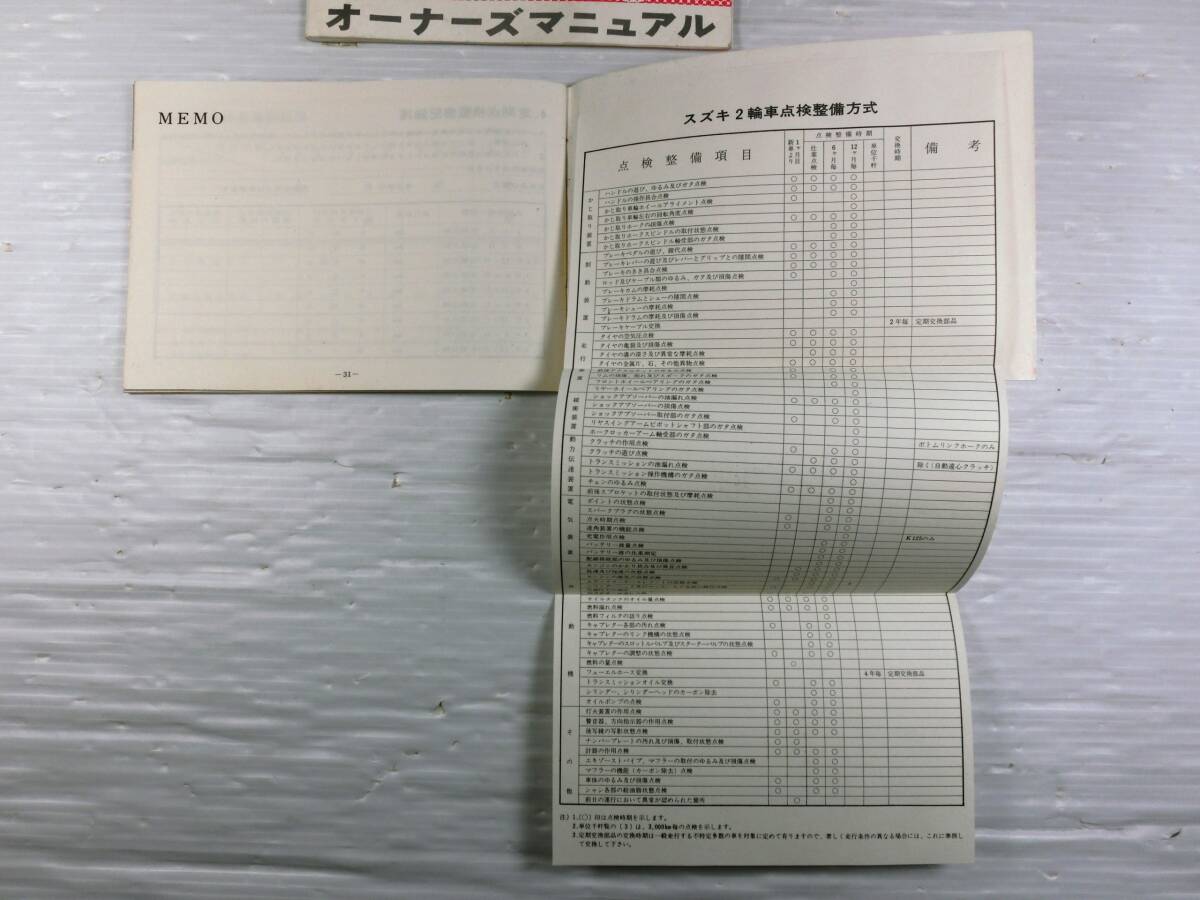 オーナーズマニュアル
MEMO
—31—
スズキ2輪車点検整備方式
点検整備項目
点検整備時期
新車より1ヶ月目
仕業点検
6ヶ月毎
12ヶ月毎
単位千粁
交換時期
備考
かじ取り装置
ハンドルの遊び、ゆるみ及びガタ点検
ハンドルの操作具合点検
かじ取り車輪ホイールアライメント点検
かじ取り車輪左右の回転角度点検
かじ取りホークの損傷点検
かじ取りホークスピンドルの取付状態点検
かじ取りホークスピンドル軸受部のガタ点検
制動装置
ブレーキペダルの遊び、踏代点検
ブレーキレバーの遊び及びレバーとグリップとの隙間点検
ブレーキのきき具合点検
ロッド及びケーブル類のゆるみ、ガタ及び損傷点検
ブレーキカムの摩耗点検
ブレーキドラムとシューの隙間点検
ブレーキシューの摩耗点検
ブレーキドラムの摩耗及び損傷点検
ブレーキケーブル交換 2年毎 定期交換部品
走行
タイヤの空気圧点検
タイヤの亀裂及び損傷点検
タイヤの溝の深さ及び異常な摩耗点検
タイヤの金属片、石、その他異物点検
フロントホイールベアリングのガタ点検
リヤーホイールベアリングのガタ点検
緩衝装置
ショックアブソーバーの油漏れ点検
ショックアブソーバーの損傷点検
ショックアブソーバー取付部のガタ点検
リヤスイングアームピボットシャフト部のガタ点検
ホークロッカーアーム軸受部のガタ点検 ボトムリンクホークのみ
動力伝達装置
クラッチの作用点検
クラッチの遊び点検 除く(自動遠心クラッチ)
トランスミッションの油漏れ点検
トランスミッション操作機構のガタ点検
チェンのゆるみ点検
前後スプロケットの取付状態及び摩耗点検
電気装置
ポイントの状態点検
スパークプラグの状態点検
点火時期点検
進角装置の機能点検
充電作用点検 K125のみ
バッテリー液量点検
バッテリー液の比重測定
配線接続部のゆるみ及び損傷点検
動機
オイルタンクのオイル量点検
燃料漏れ点検
燃料フィルタの詰り点検
キャブレター各部の汚れ点検
キャブレターのリンク機構の状態点検
キャブレターのスロットルバルブ及びスターターバルブの状態点検
キャブレターの調整の状態点検
燃料の量点検
フューエルホース交換 4年毎 定期交換部品
トランスミッションオイル交換
シリンダー、シリンダーヘッドのカーボン除去
オイルポンプの点検
その他
灯火装置の作用点検
警音器、方向指示器の作用点検
後写鏡の写影状態点検
ナンバープレートの汚れ及び損傷、取付状態点検
計器の作用点検
エキゾーストパイプ、マフラーの取付のゆるみ及び損傷点検
マフラーの機能(カーボン除去)点検
車体のゆるみ及び損傷点検
シャシ各部の給油脂状態点検
前日の運行において異常が認められた箇所
注)1.(○)印は点検時期を示します。
2.単位千粁覧の(3)は、3,000km毎の点検を示します。
3.定期交換部品の交換時期は一般走行する不特定多数の車を対象に定めて有りますので、著しく走行条件の異なる場合には、これに準拠し
て交換して下さい。